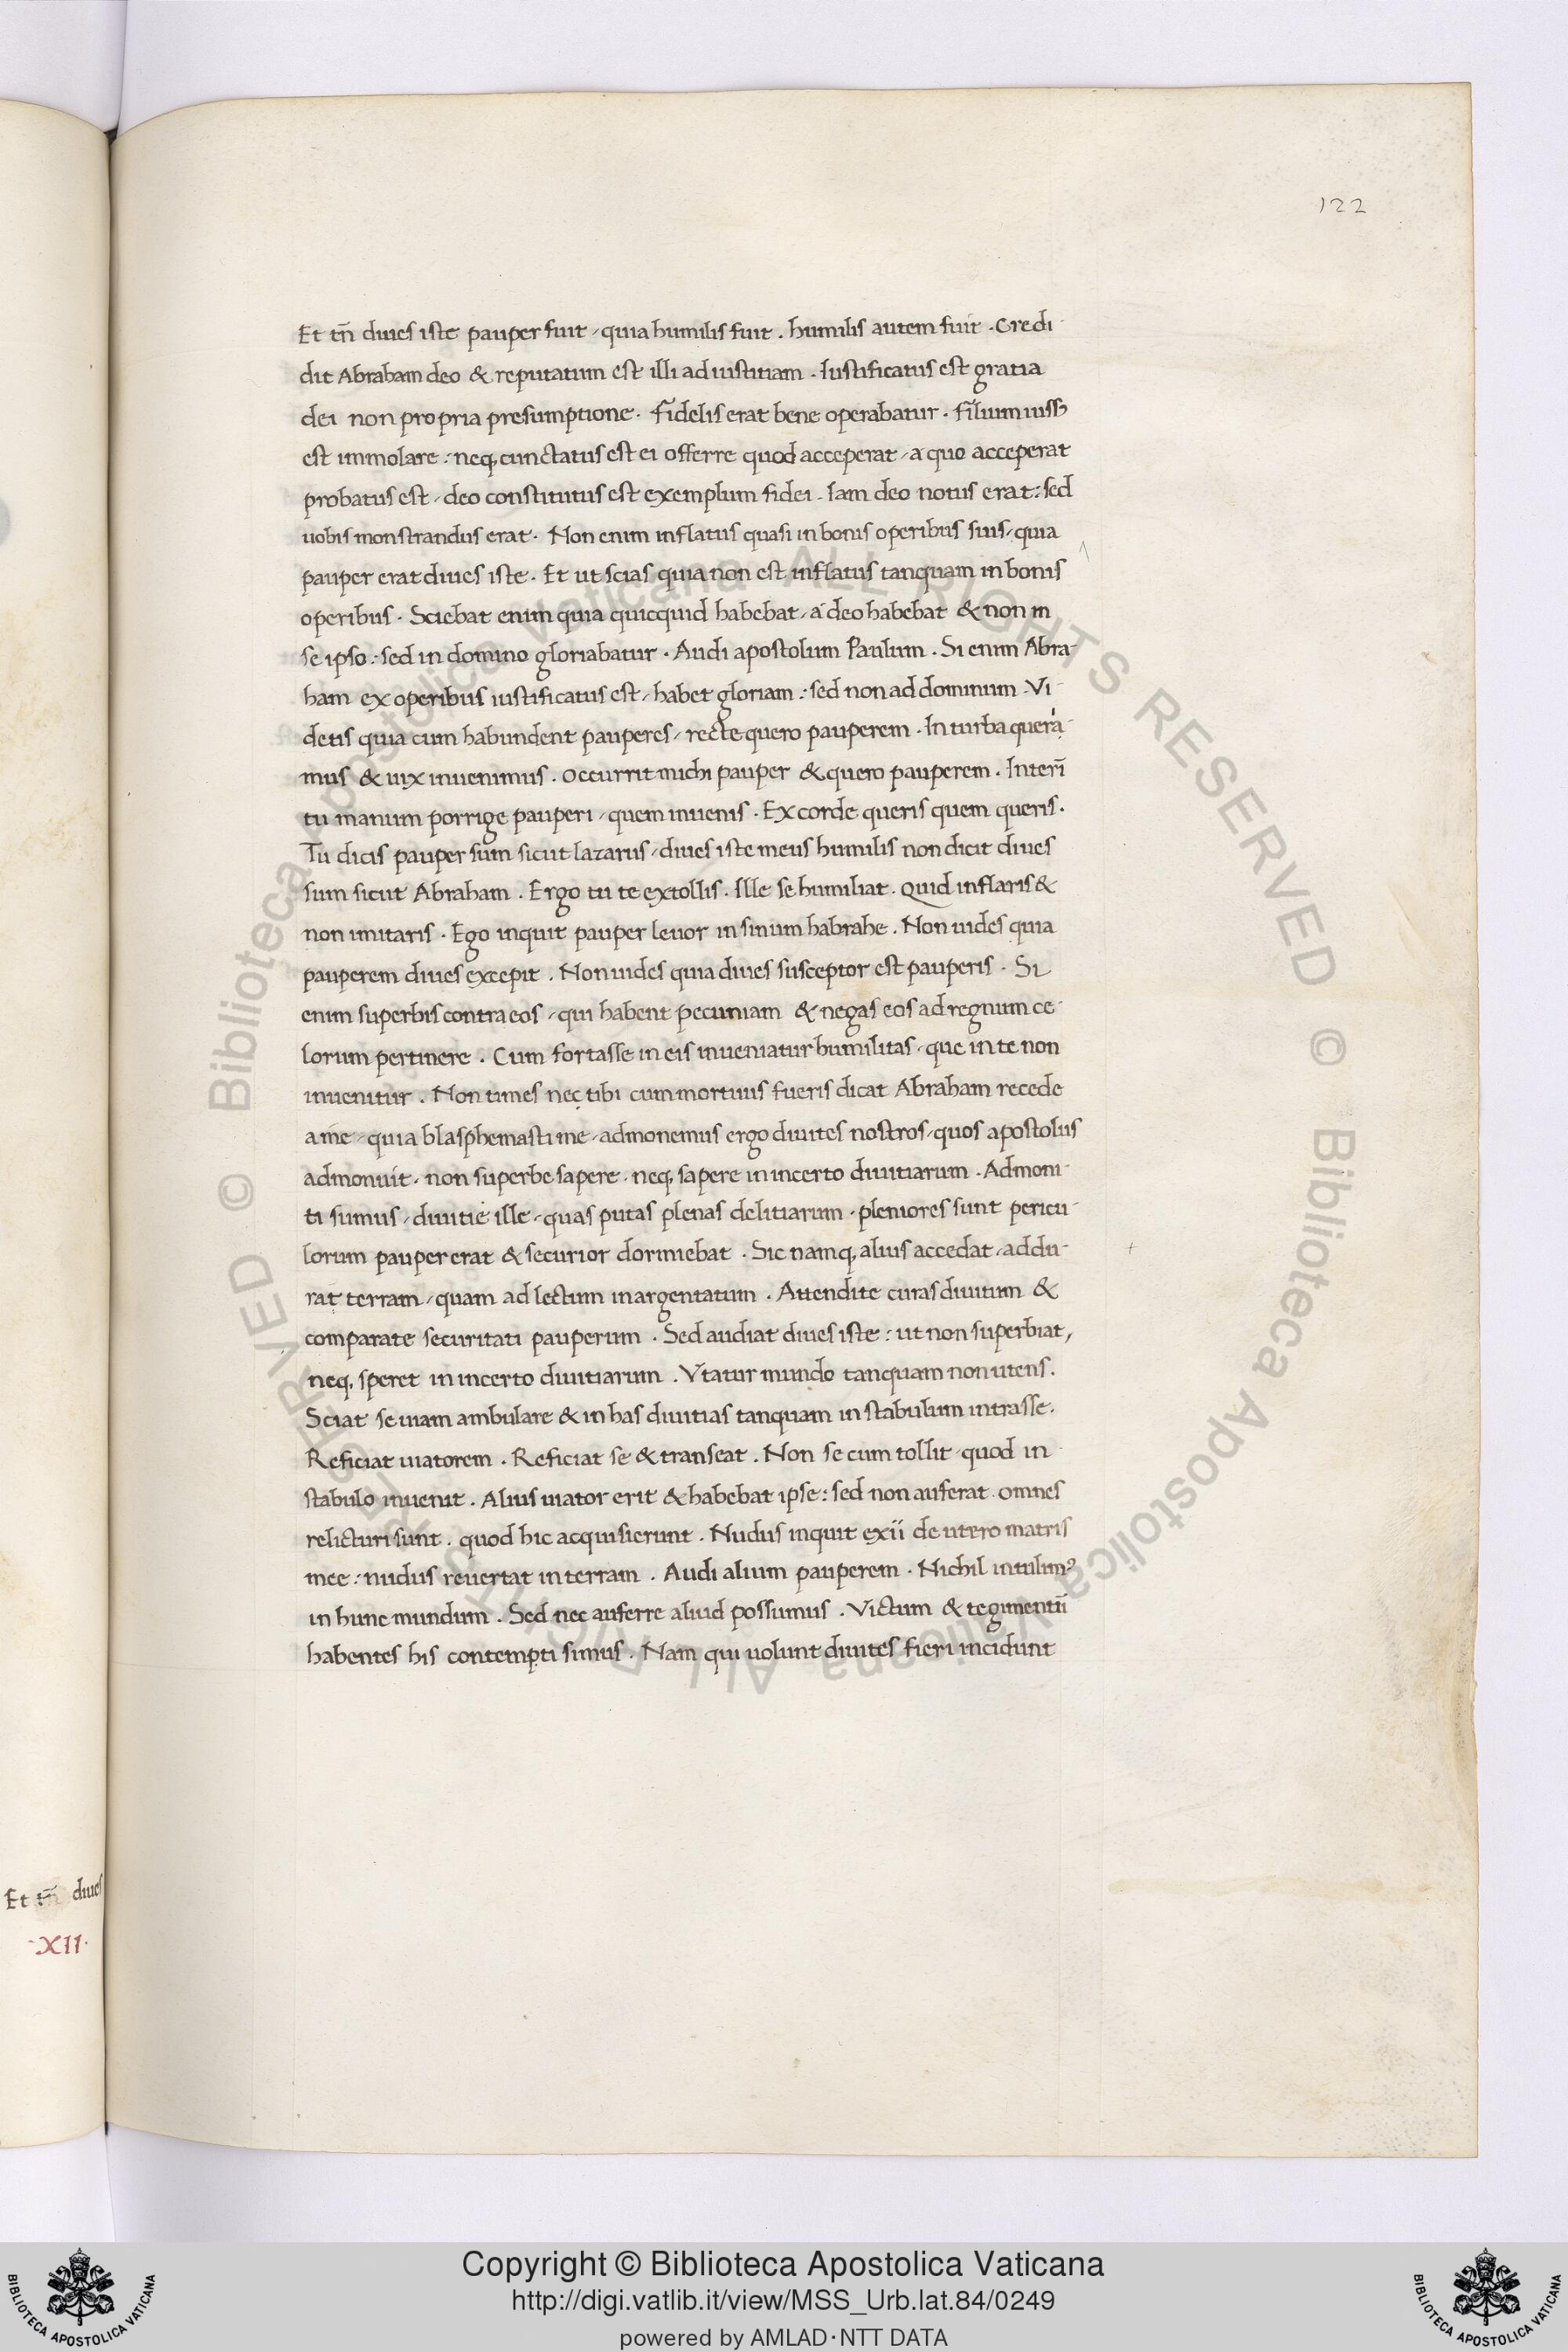 122
Et tñ diues iste pauper fuit, quia humilis fuit. humilis autem fuit. Credi-
dit Abraham deo & reputatum est illi ad iustitiam. Iustificatus est gratia
dei non propria presumptione. Fidelis erat bene operabatur. filium iussꝰ
est immolare: neq; cunctatus est ei offerre quod acceperat, a quo acceperat
probatus est, deo constitutus est exemplum fidei. Iam deo notus erat: sed
uobis monstrandus erat. Non enim inflatus quasi in bonis operibus suis, quia
pauper erat diues iste. Et ut scias quia non est inflatus tanquam in bonis
operibus. Sciebat enim quia quicquid habebat, a deo habebat & non in
se ipso: sed in domino gloriabatur. Audi apostolum Paulum. Si enim Abra-
ham ex operibus iustificatus est, habet gloriam: sed non ad dominum. Vi-
detis quia cum habundent pauperes, recte quero pauperem. In turba queri-
mus & uix inuenimus. Occurrit michi pauper & quero pauperem. Interĩ
tu manum porrige pauperi, quem inuenis. Ex corde queris quem queris.
Tu dicis pauper sum sicut lazarus, diues iste meus humilis non dicit diues
sum sicut Abraham. Ergo tu te extollis. Ille se humiliat. Quid inflaris &
non imitaris. Ego inquit pauper leuor in sinum habrahe. Non uides quia
pauperem diues excepit. Non uides quia diues susceptor est pauperis. Si
enim superbis contra eos, qui habent pecuniam & negas eos ad regnum ce-
lorum pertinere. Cum fortasse in eis inueniatur humilitas, que in te non
inuenitur. Non times nec tibi cum mortuus fueris dicat Abraham recede
a me, quia blasphemasti me, admonemus ergo diuites nostros, quos apostolus
admonuit, non superbe sapere, neq; sapere in incerto diuitiarum. Admoni-
ti sumus, diuitie ille, quas putas plenas delitiarum, pleniores sunt pericu-
lorum pauper erat & securior dormiebat. Sic namq; alius accedat, addu-
rat terram, quam ad lectum inargentatum. Attendite curas diuitum &
comparate securitati pauperum. Sed audiat diues iste: ut non superbiat,
neq; speret in incerto diuitiarum. Vtatur mundo tanquam non utens.
Sciat se uiam ambulare & in has diuitias tanquam in stabulum intrasse.
Reficiat uiatorem. Reficiat se & transeat. Non se cum tollit quod in
stabulo inuenit. Alius uiator erit & habebat ipse: sed non auferat. omnes
relicturi sunt. quod hic acquisierunt. Nudus inquit exii de utero matris
mee: nudus reuertat in terram. Audi alium pauperem. Nichil intulimꝰ
in hunc mundum. Sed nec auferre aliud possumus. Victum & tegimentũ
habentes his contempti simus. Nam qui uolunt diuites fieri incidunt
Et tñ diues
·XII·
© Biblioteca Apostolica Vaticana ALL RIGHTS RESERVED © Biblioteca Apostolica Vaticana ALL RIGHTS RESERVED
Copyright © Biblioteca Apostolica Vaticana
http://digi.vatlib.it/view/MSS_Urb.lat.84/0249
powered by AMLAD·NTT DATA
BIBLIOTECA APOSTOLICA VATICANA
BIBLIOTECA APOSTOLICA VATICANA